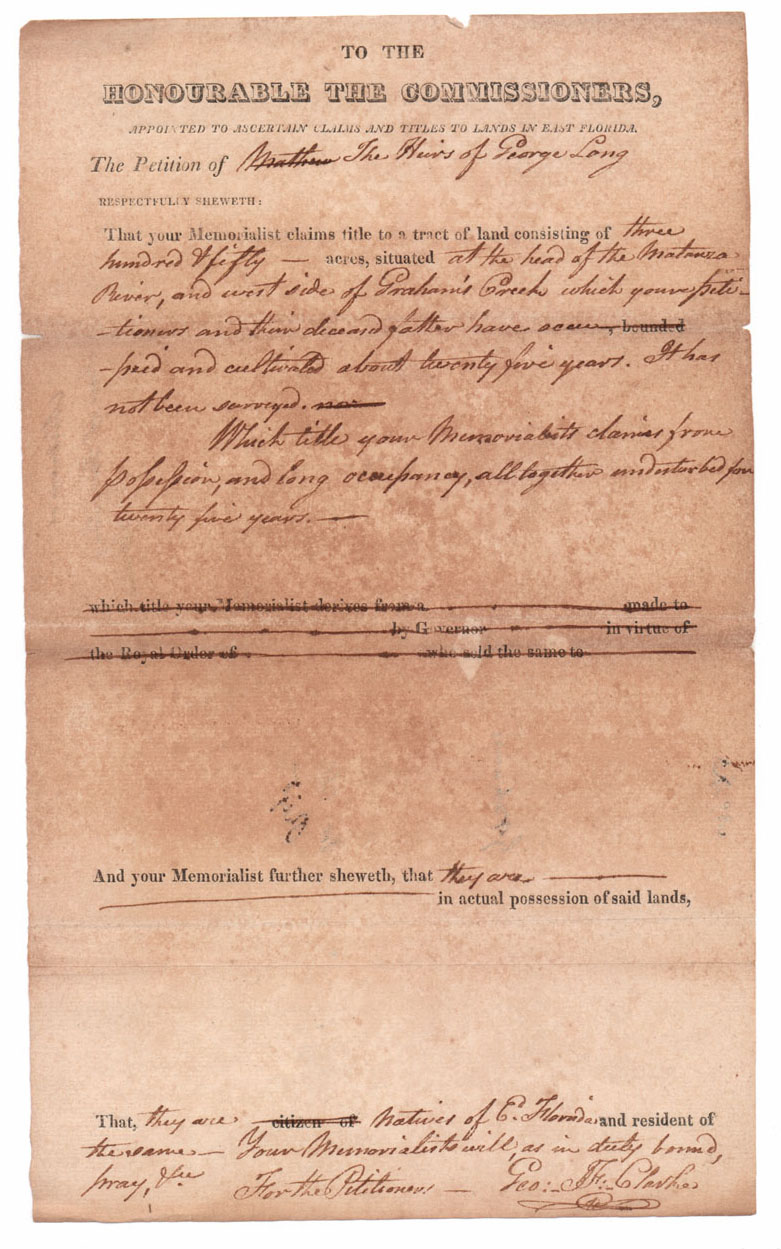 TO THE
HONOURABLE THE COMMISSIONERS,
APPOINTED TO ASCERTAIN CLAIMS AND TITLES TO LANDS IN EAST FLORIDA.
The Petition of Mathew The Heirs of George Long
RESPECTFULLY SHEWETH:
That your Memorialist claims title to a tract of land consisting of three
hundred & fifty — acres, situated at the head of the Matanza
River, and west side of Graham's Creek which your peti-
-tioners and their deceased father have occu-, bounded
-pied and cultivated about twenty five years. It has
not been surveyed.
Which title your Memorialists claims from
possession, and long occupancy, all together undisturbed for
twenty five years. —
which title your Memorialist derives from a made to
by Governor in virtue of
the Royal Order of who sold the same to
And your Memorialist further sheweth, that they are
in actual possession of said lands,
That, they are citizen of Natives of E. Florida and resident of
the same — Your Memorialists will, as in duty bound,
pray, &c For the Petitioners — Geo: F: Clarke